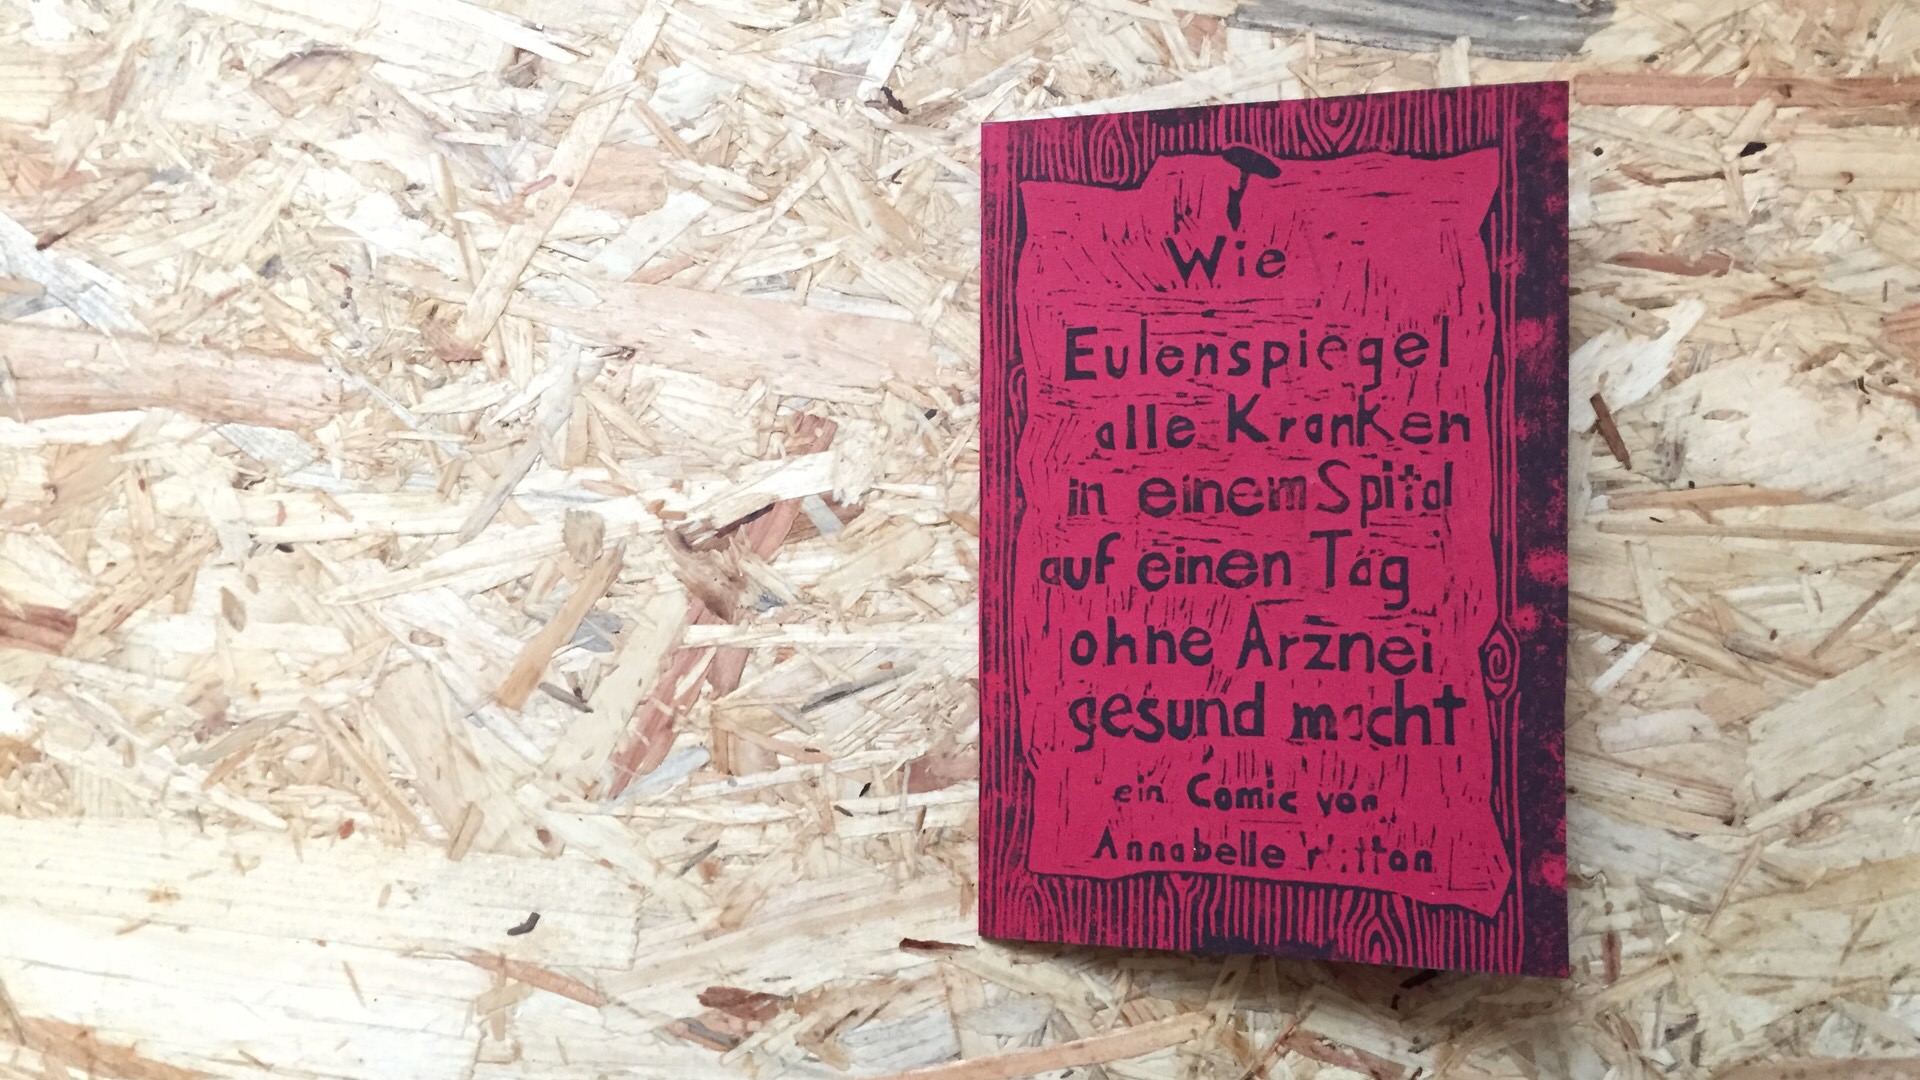 Wie
Eulenspiegel
alle Kranken
in einem Spital
auf einen Tag
ohne Arznei
gesund macht
ein Comic von
Annabelle